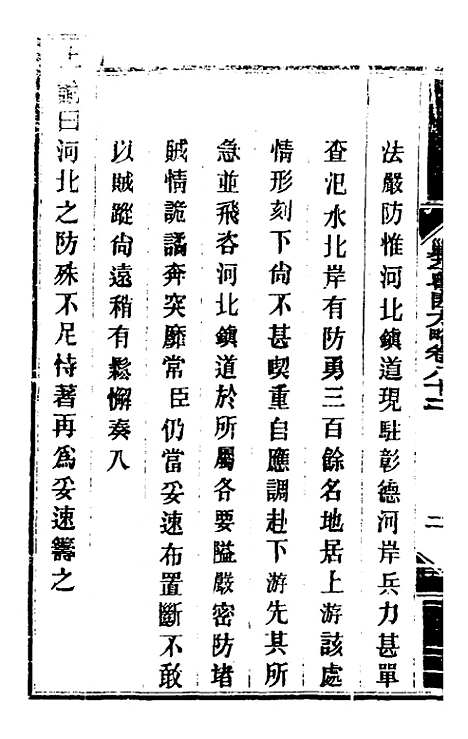 法嚴防惟河北鎮道現駐彰德河岸兵力甚單
查汜水北岸有防勇三百餘名地居上游該處
情形刻下尙不甚喫重自應調赴下游先其所
急並飛咨河北鎮道於所屬各要隘嚴密防堵
賊情詭譎奔突靡常臣仍當妥速布置斷不敢
以賊蹤尙遠稍有鬆懈奏入
上諭曰河北之防殊不足恃著再爲妥速籌之
方略卷八十二
二